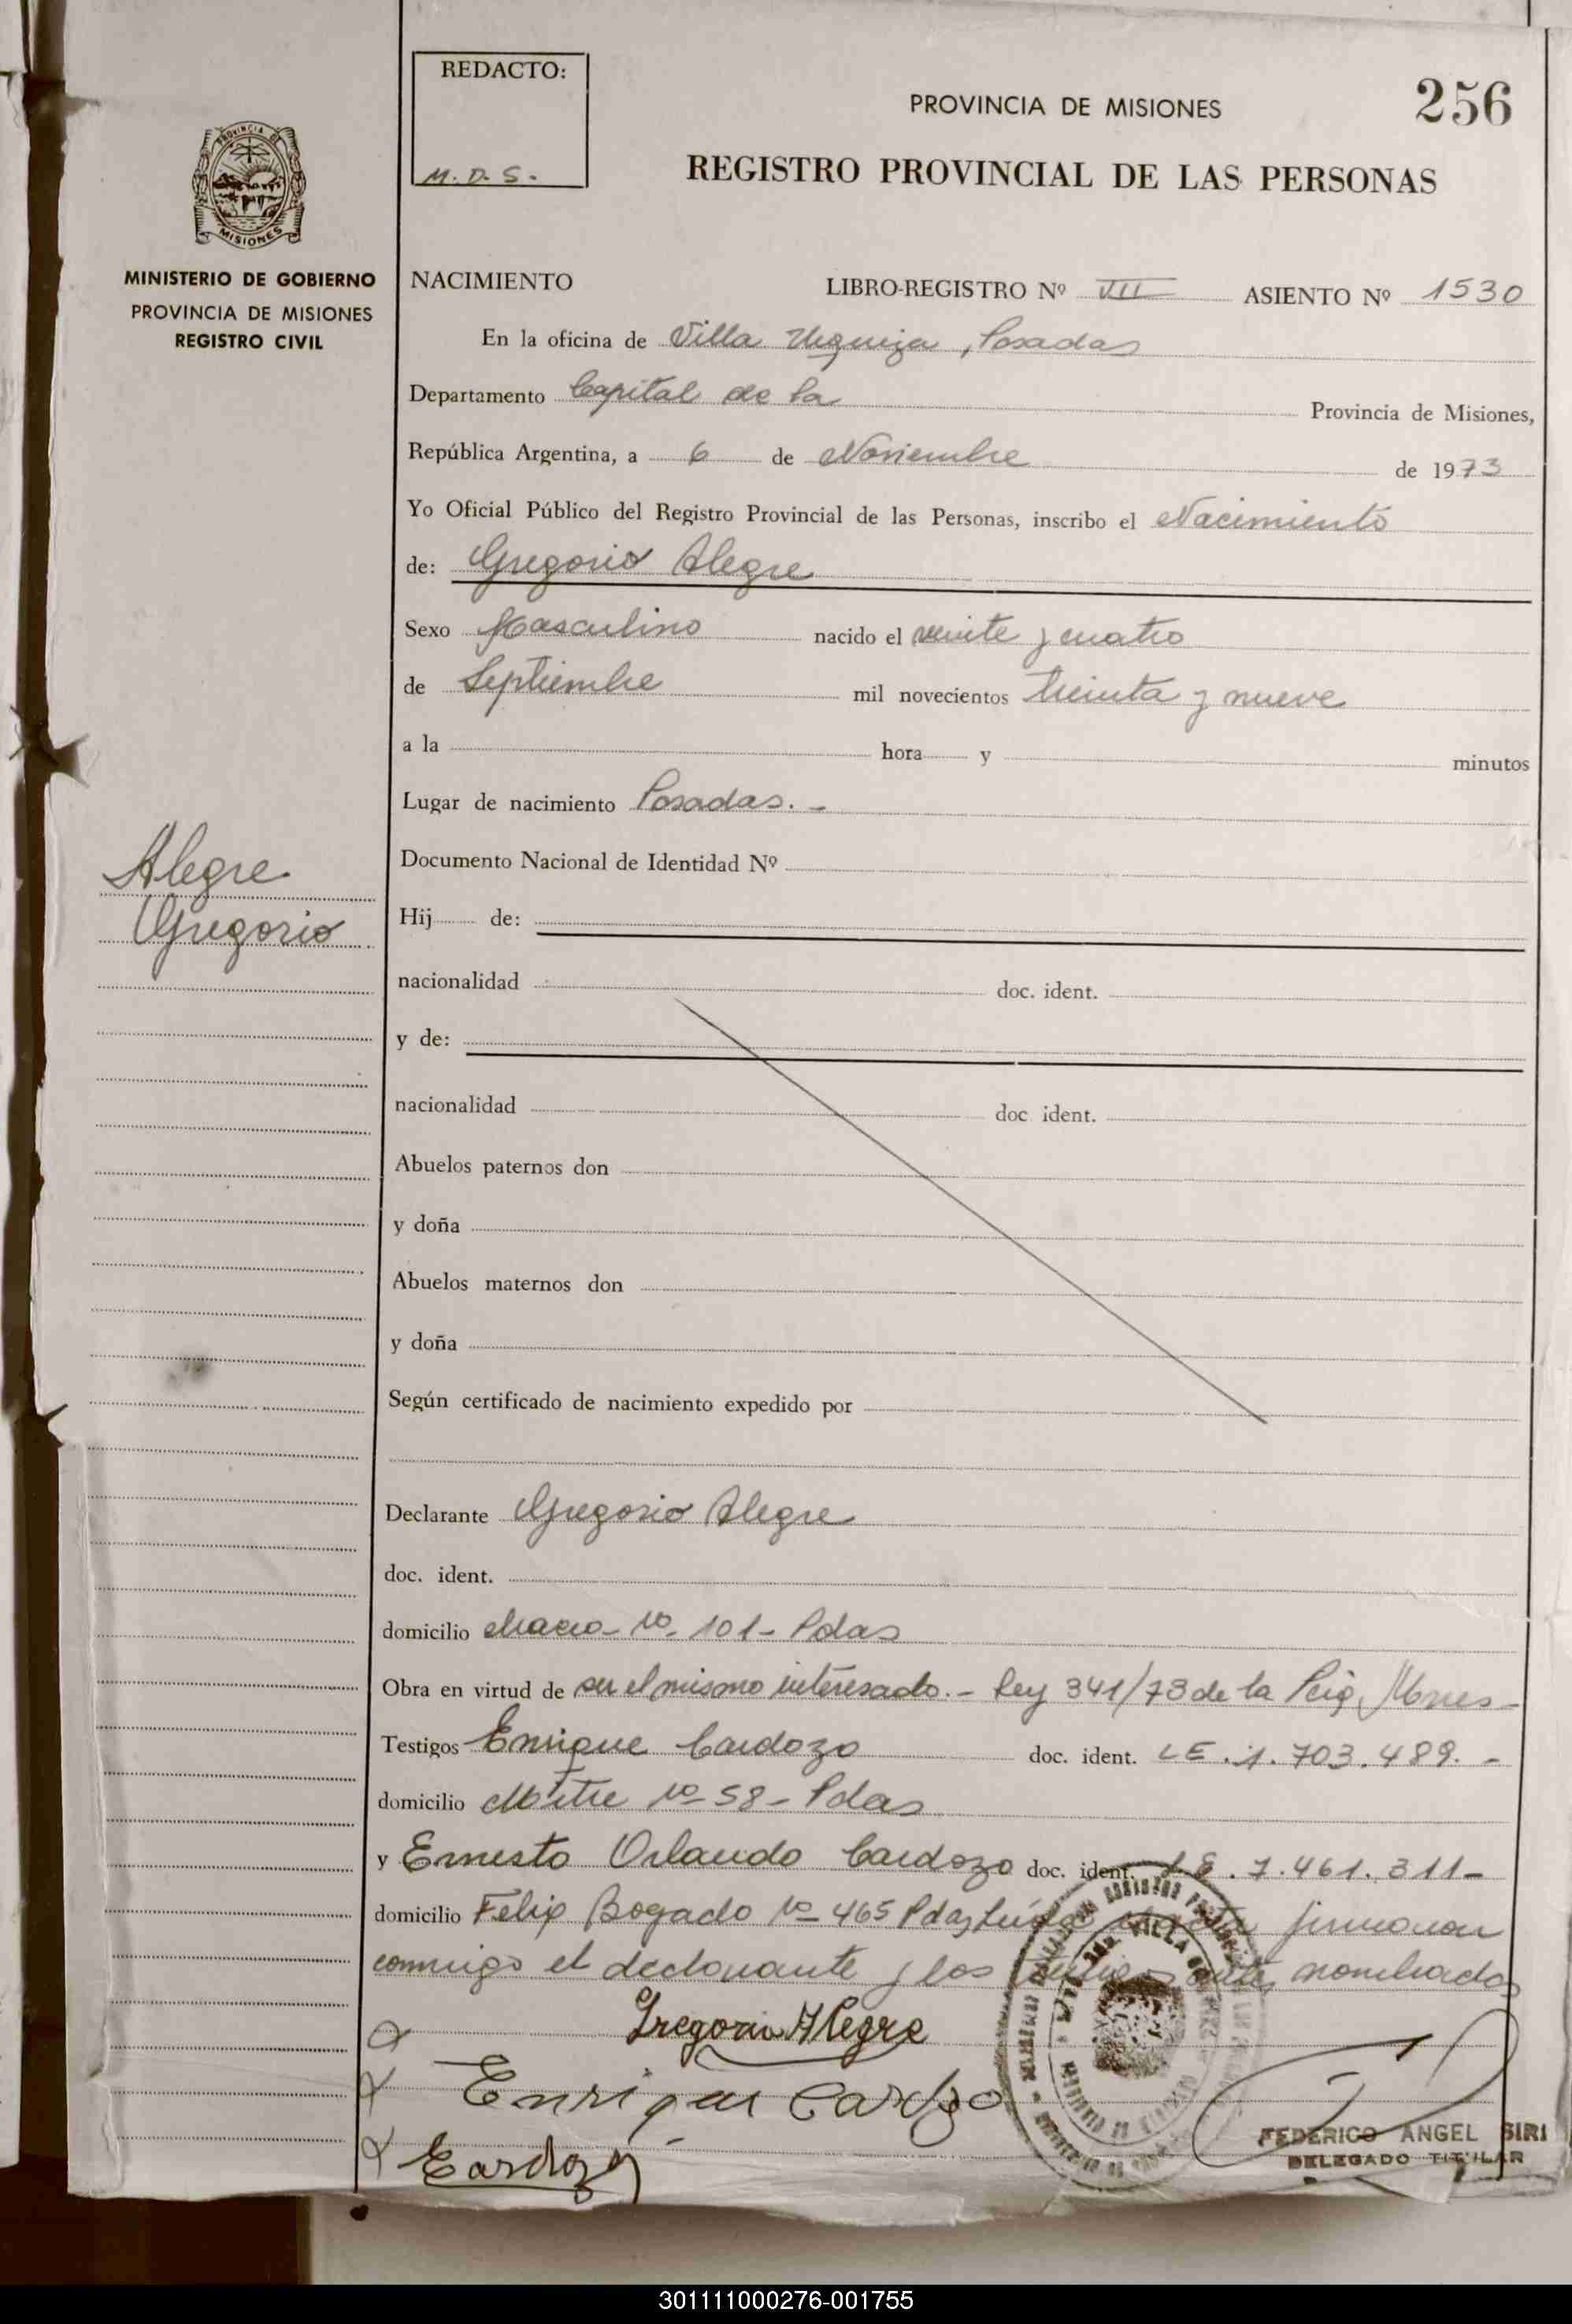 REDACTO:
M. D. S.
PROVINCIA DE MISIONES
256
REGISTRO PROVINCIAL DE LAS PERSONAS
PROVINCIA DE
MISIONES
MINISTERIO DE GOBIERNO
PROVINCIA DE MISIONES
REGISTRO CIVIL
NACIMIENTO LIBRO-REGISTRO Nº VII ASIENTO Nº 1530
En la oficina de Villa Urquiza, Posadas
Departamento Capital de la Provincia de Misiones,
República Argentina, a 6 de Noviembre de 1973
Yo Oficial Público del Registro Provincial de las Personas, inscribo el Nacimiento
de: Gregorio Alegre
Sexo Masculino nacido el veinte y cuatro
de Septiembre mil novecientos treinta y nueve
a la hora y minutos
Lugar de nacimiento Posadas. -
Documento Nacional de Identidad Nº
Alegre
Gregorio
Hij de:
nacionalidad doc. ident.
y de:
nacionalidad doc ident.
Abuelos paternos don
y doña
Abuelos maternos don
y doña
Según certificado de nacimiento expedido por
Declarante Gregorio Alegre
doc. ident.
domicilio Nº 101 - Pdas
Obra en virtud de ser el mismo interesado. - Ley 341/73 de la
Testigos Enrique Cardozo doc. ident. LE. 1. 703. 489. -
domicilio Mitre Nº 58 - Pdas
y Ernesto Orlando Cardozo doc. ident. 7. 461. 311 -
domicilio Felix Bogado Nº 465 Pdas firmaron
conmigo el declarante y los nombrados
Gregorio Alegre
Enrique Cardozo
Cardozo
VILLA
FEDERICO ANGEL SIRI
DELEGADO TITULAR
301111000276-001755